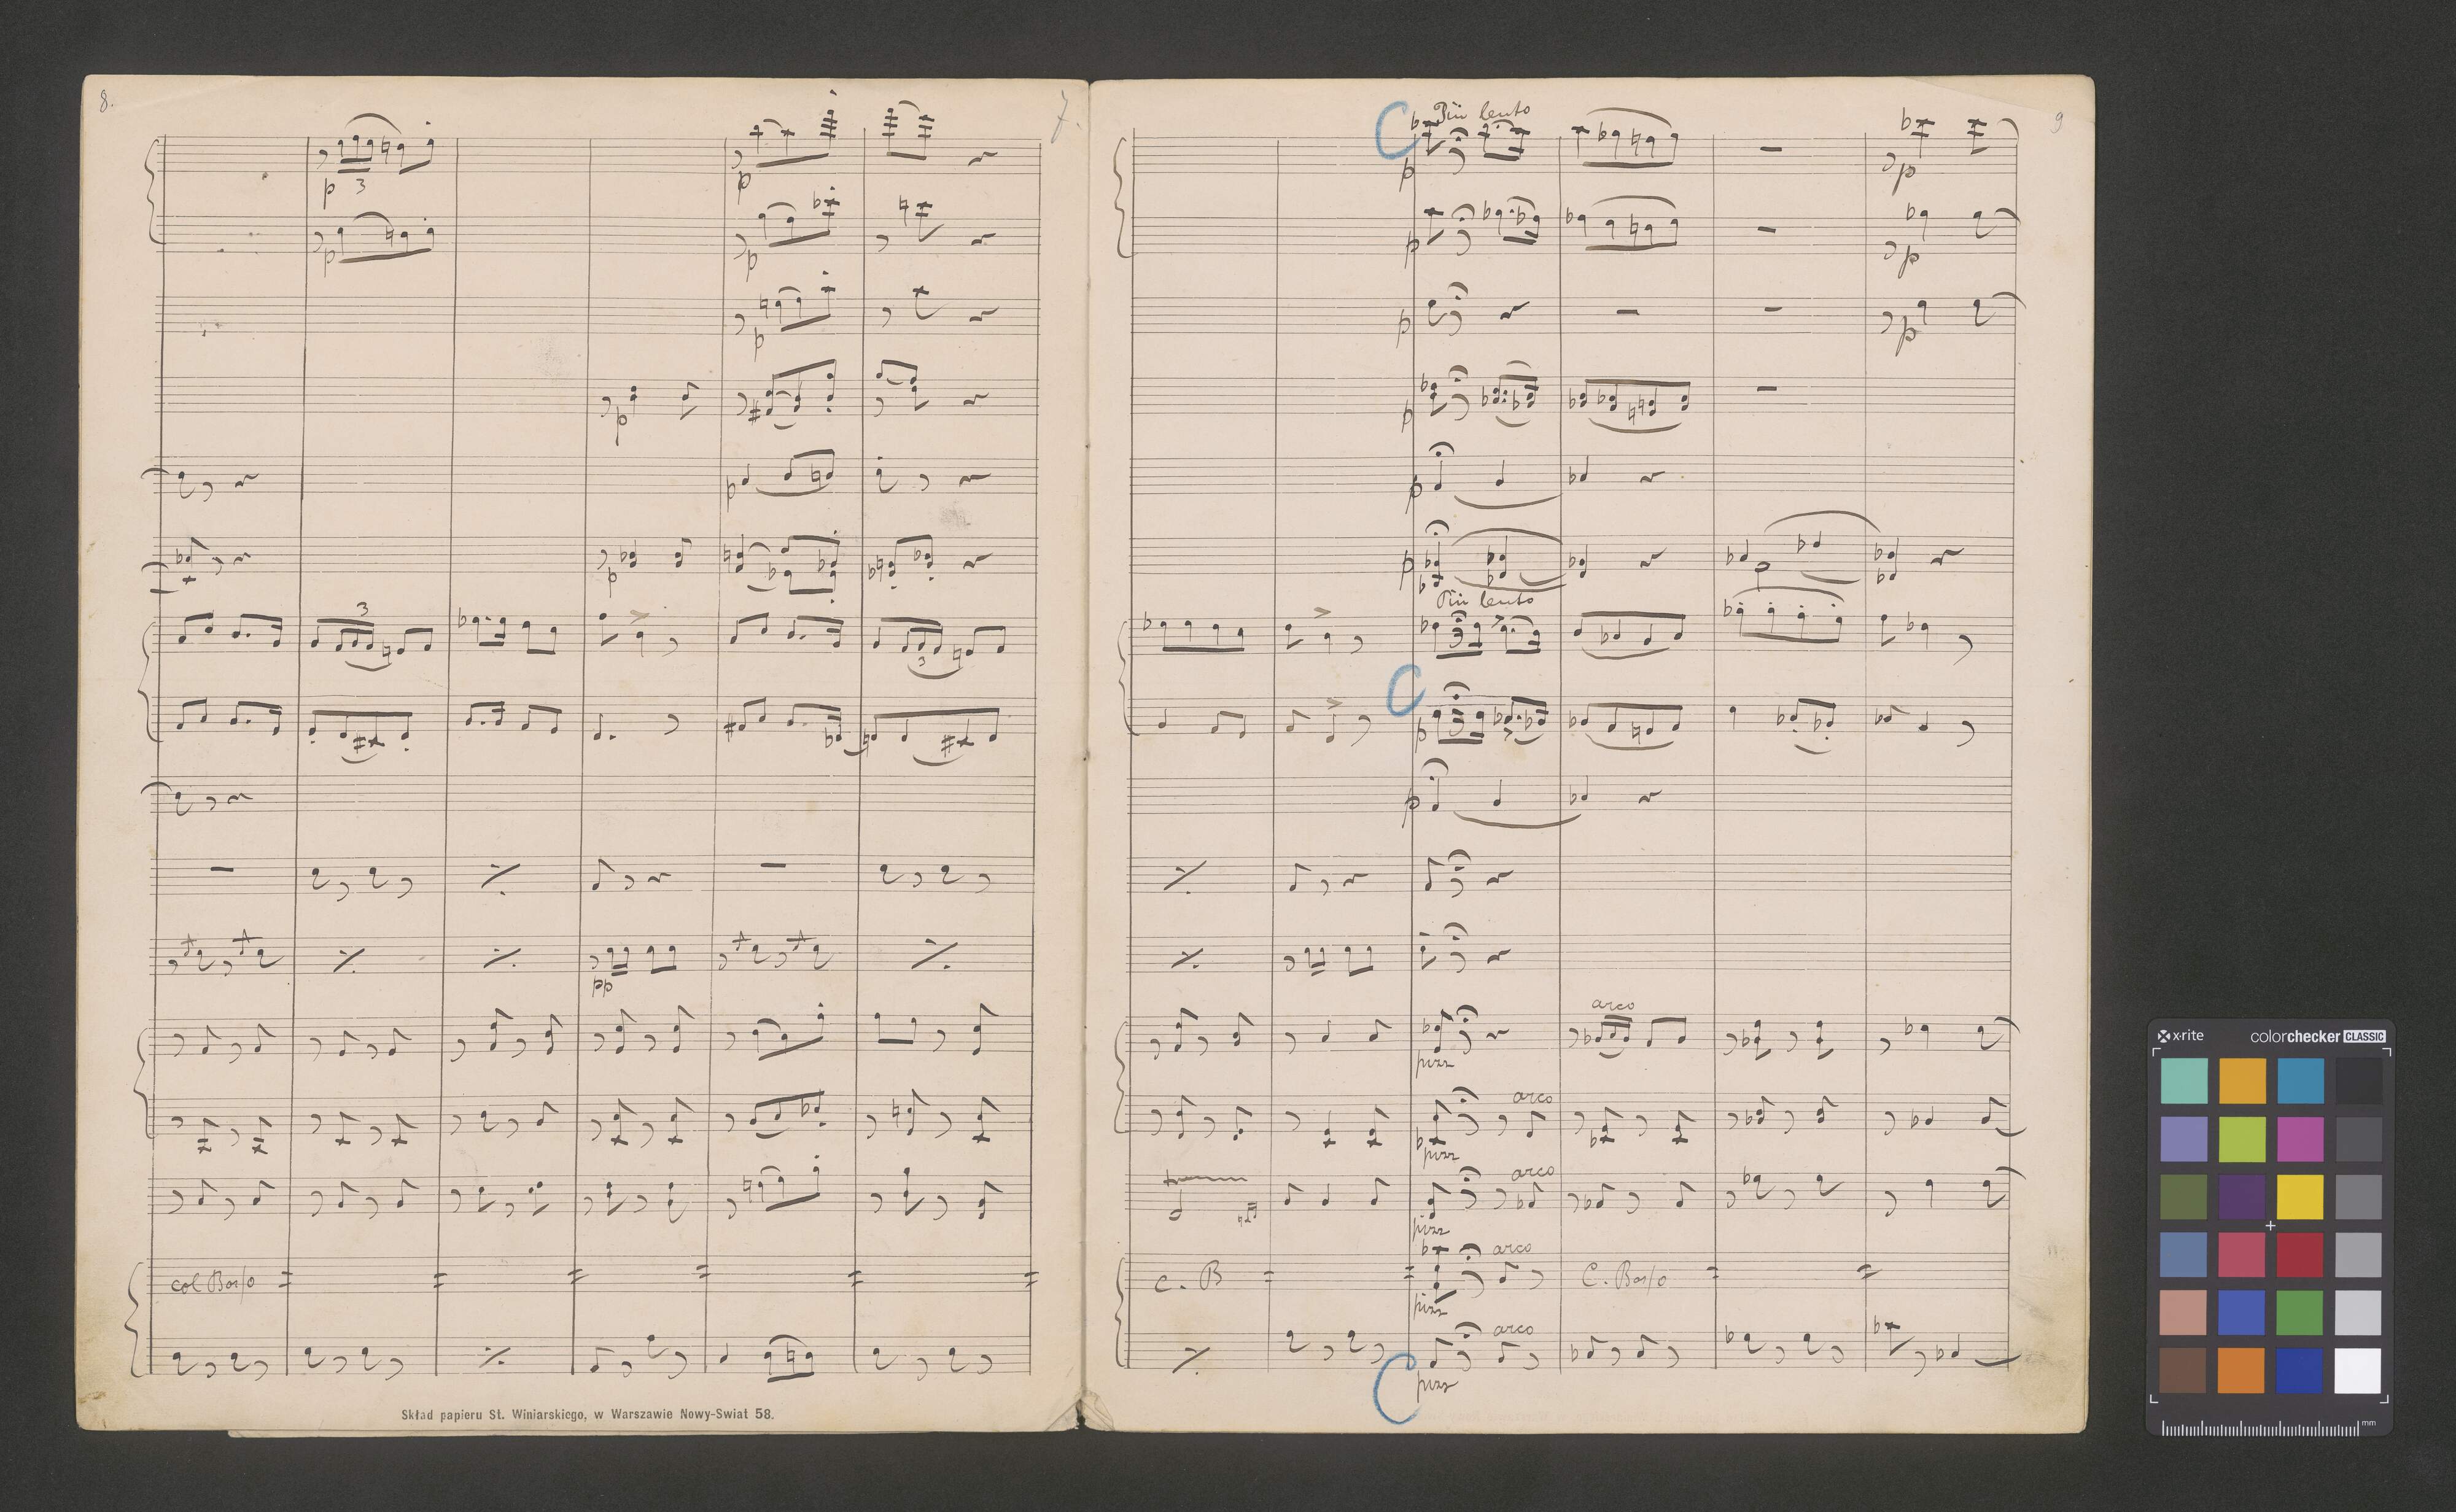 8.
7.
p 3
p
p
p
p
p
p
p
p
3
3
pp
col Basso
Skład papieru St. Winiarskiego, w Warszawie Nowy-Swiat 58.
9
C Più lento
p
p
p
p
p
p
p
p
p
Più lento
C
p
p
arco
pizz
arco
pizz
arco
pizz
c. B
arco
C. Basso
pizz
arco
C pizz
x-rite
colorchecker CLASSIC
mm